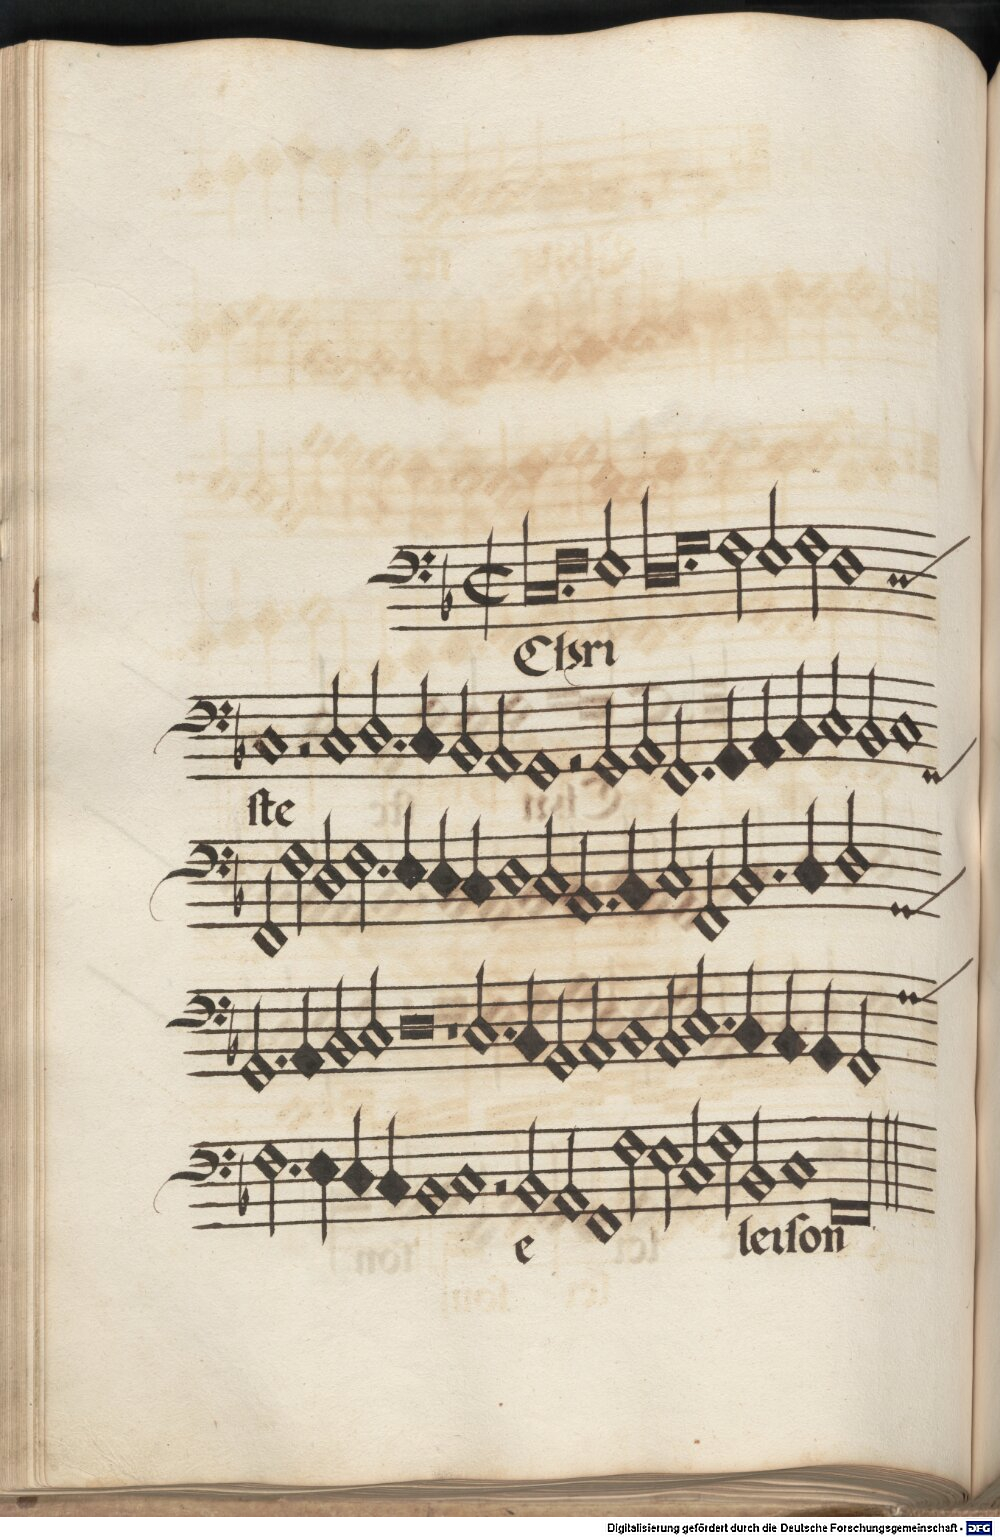 Chri
ſte
e
leıſon
Digitalisierung gefördert durch die Deutsche Forschungsgemeinschaft - DFG